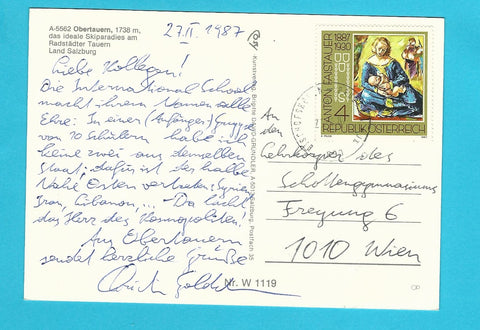 A-5562 Obertauern, 1738 m,
das ideale Skiparadies am
Radstädter Tauern
Land Salzburg
27.II.1987
Liebe Kollegen!
Die International School
macht ihrem Namen alle
Ehre: In einer (Anfänger) Gruppe
von 10 Schülern habe ich
keine zwei aus demselben
Staat; dafür ist der halbe
Nahe Osten vertreten: Syrien,
Iran, Libanon... Da lacht
das Herz des Kosmopoliten!
Aus Obertauern
sendet herzliche Grüße
Nr. W 1119
ANTON FAISTAUER 1887
1930
4
REPUBLIK ÖSTERREICH
An
den
Lehrkörper des
Schottengymnasiums
Freyung 6
1010 Wien